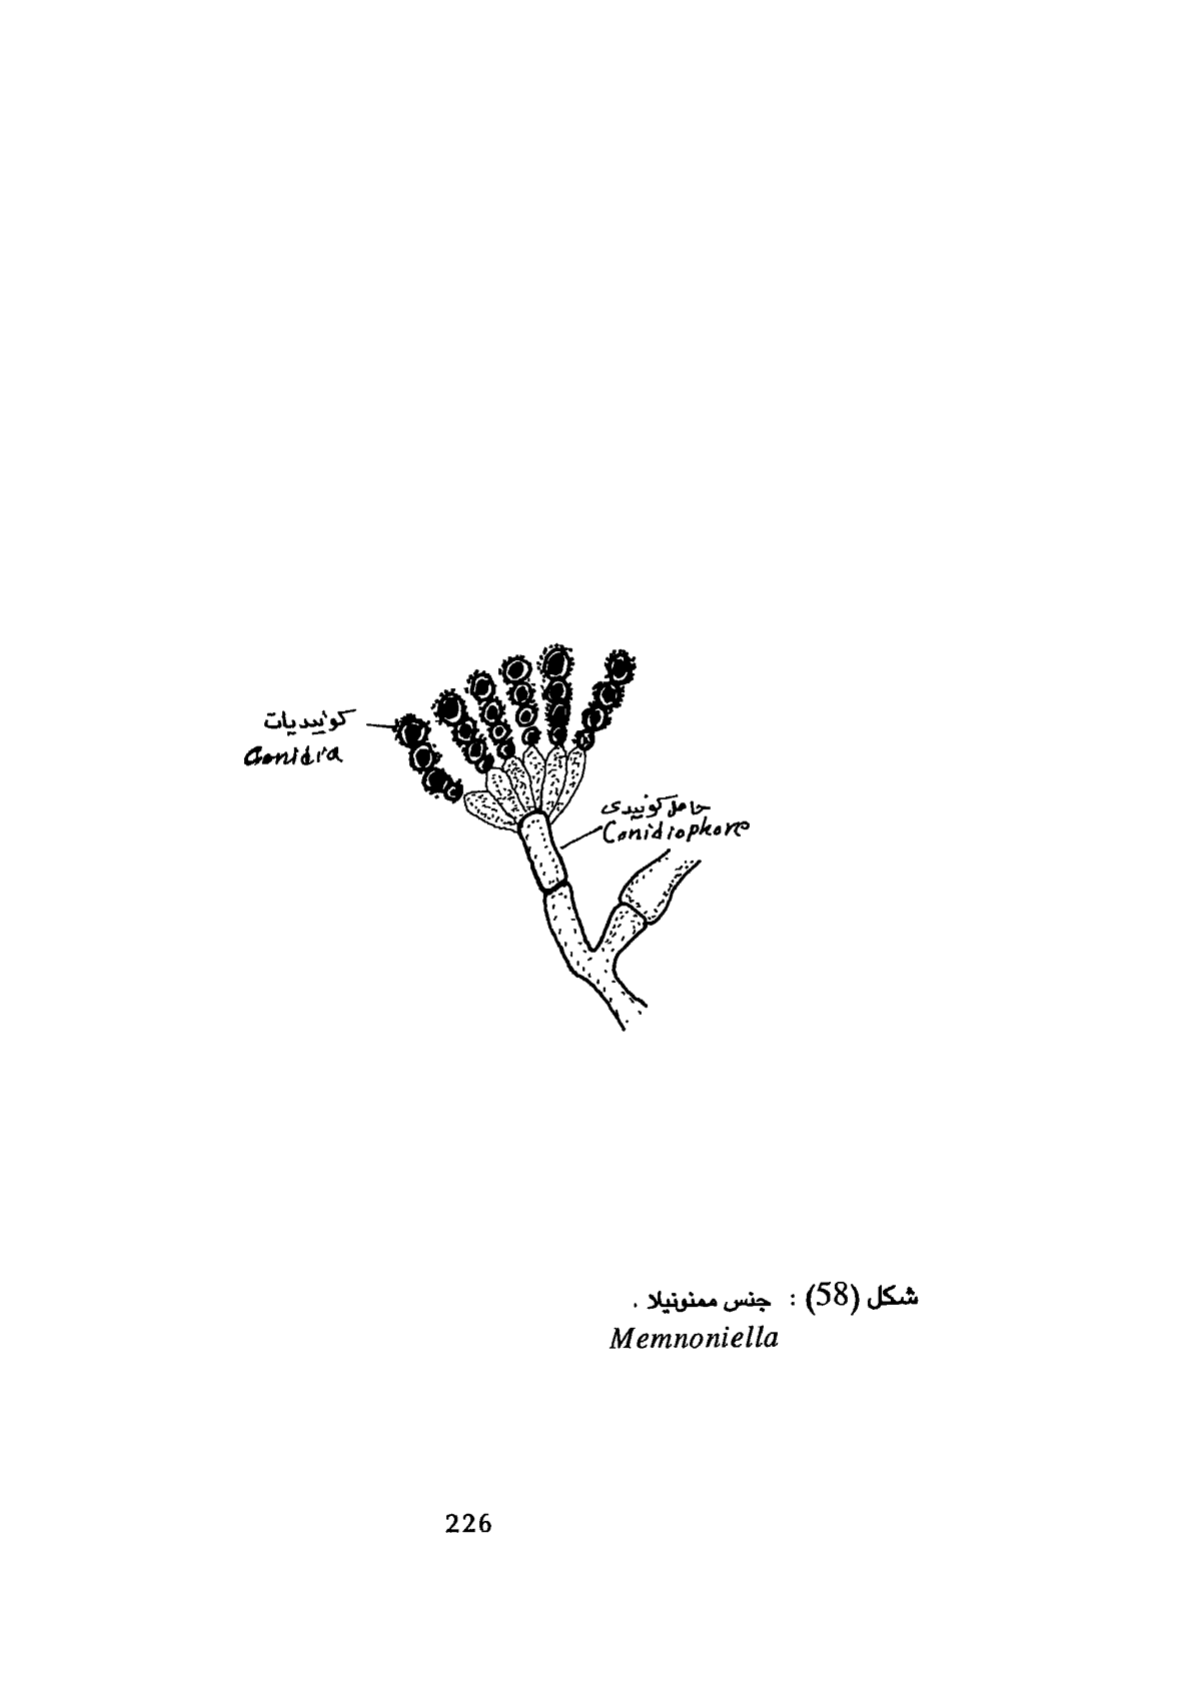 كونيديات
Conidia
حامل كونيدى
Conidiophore
شكل (58) : جنس ممنونيلا .
Memnoniella
226